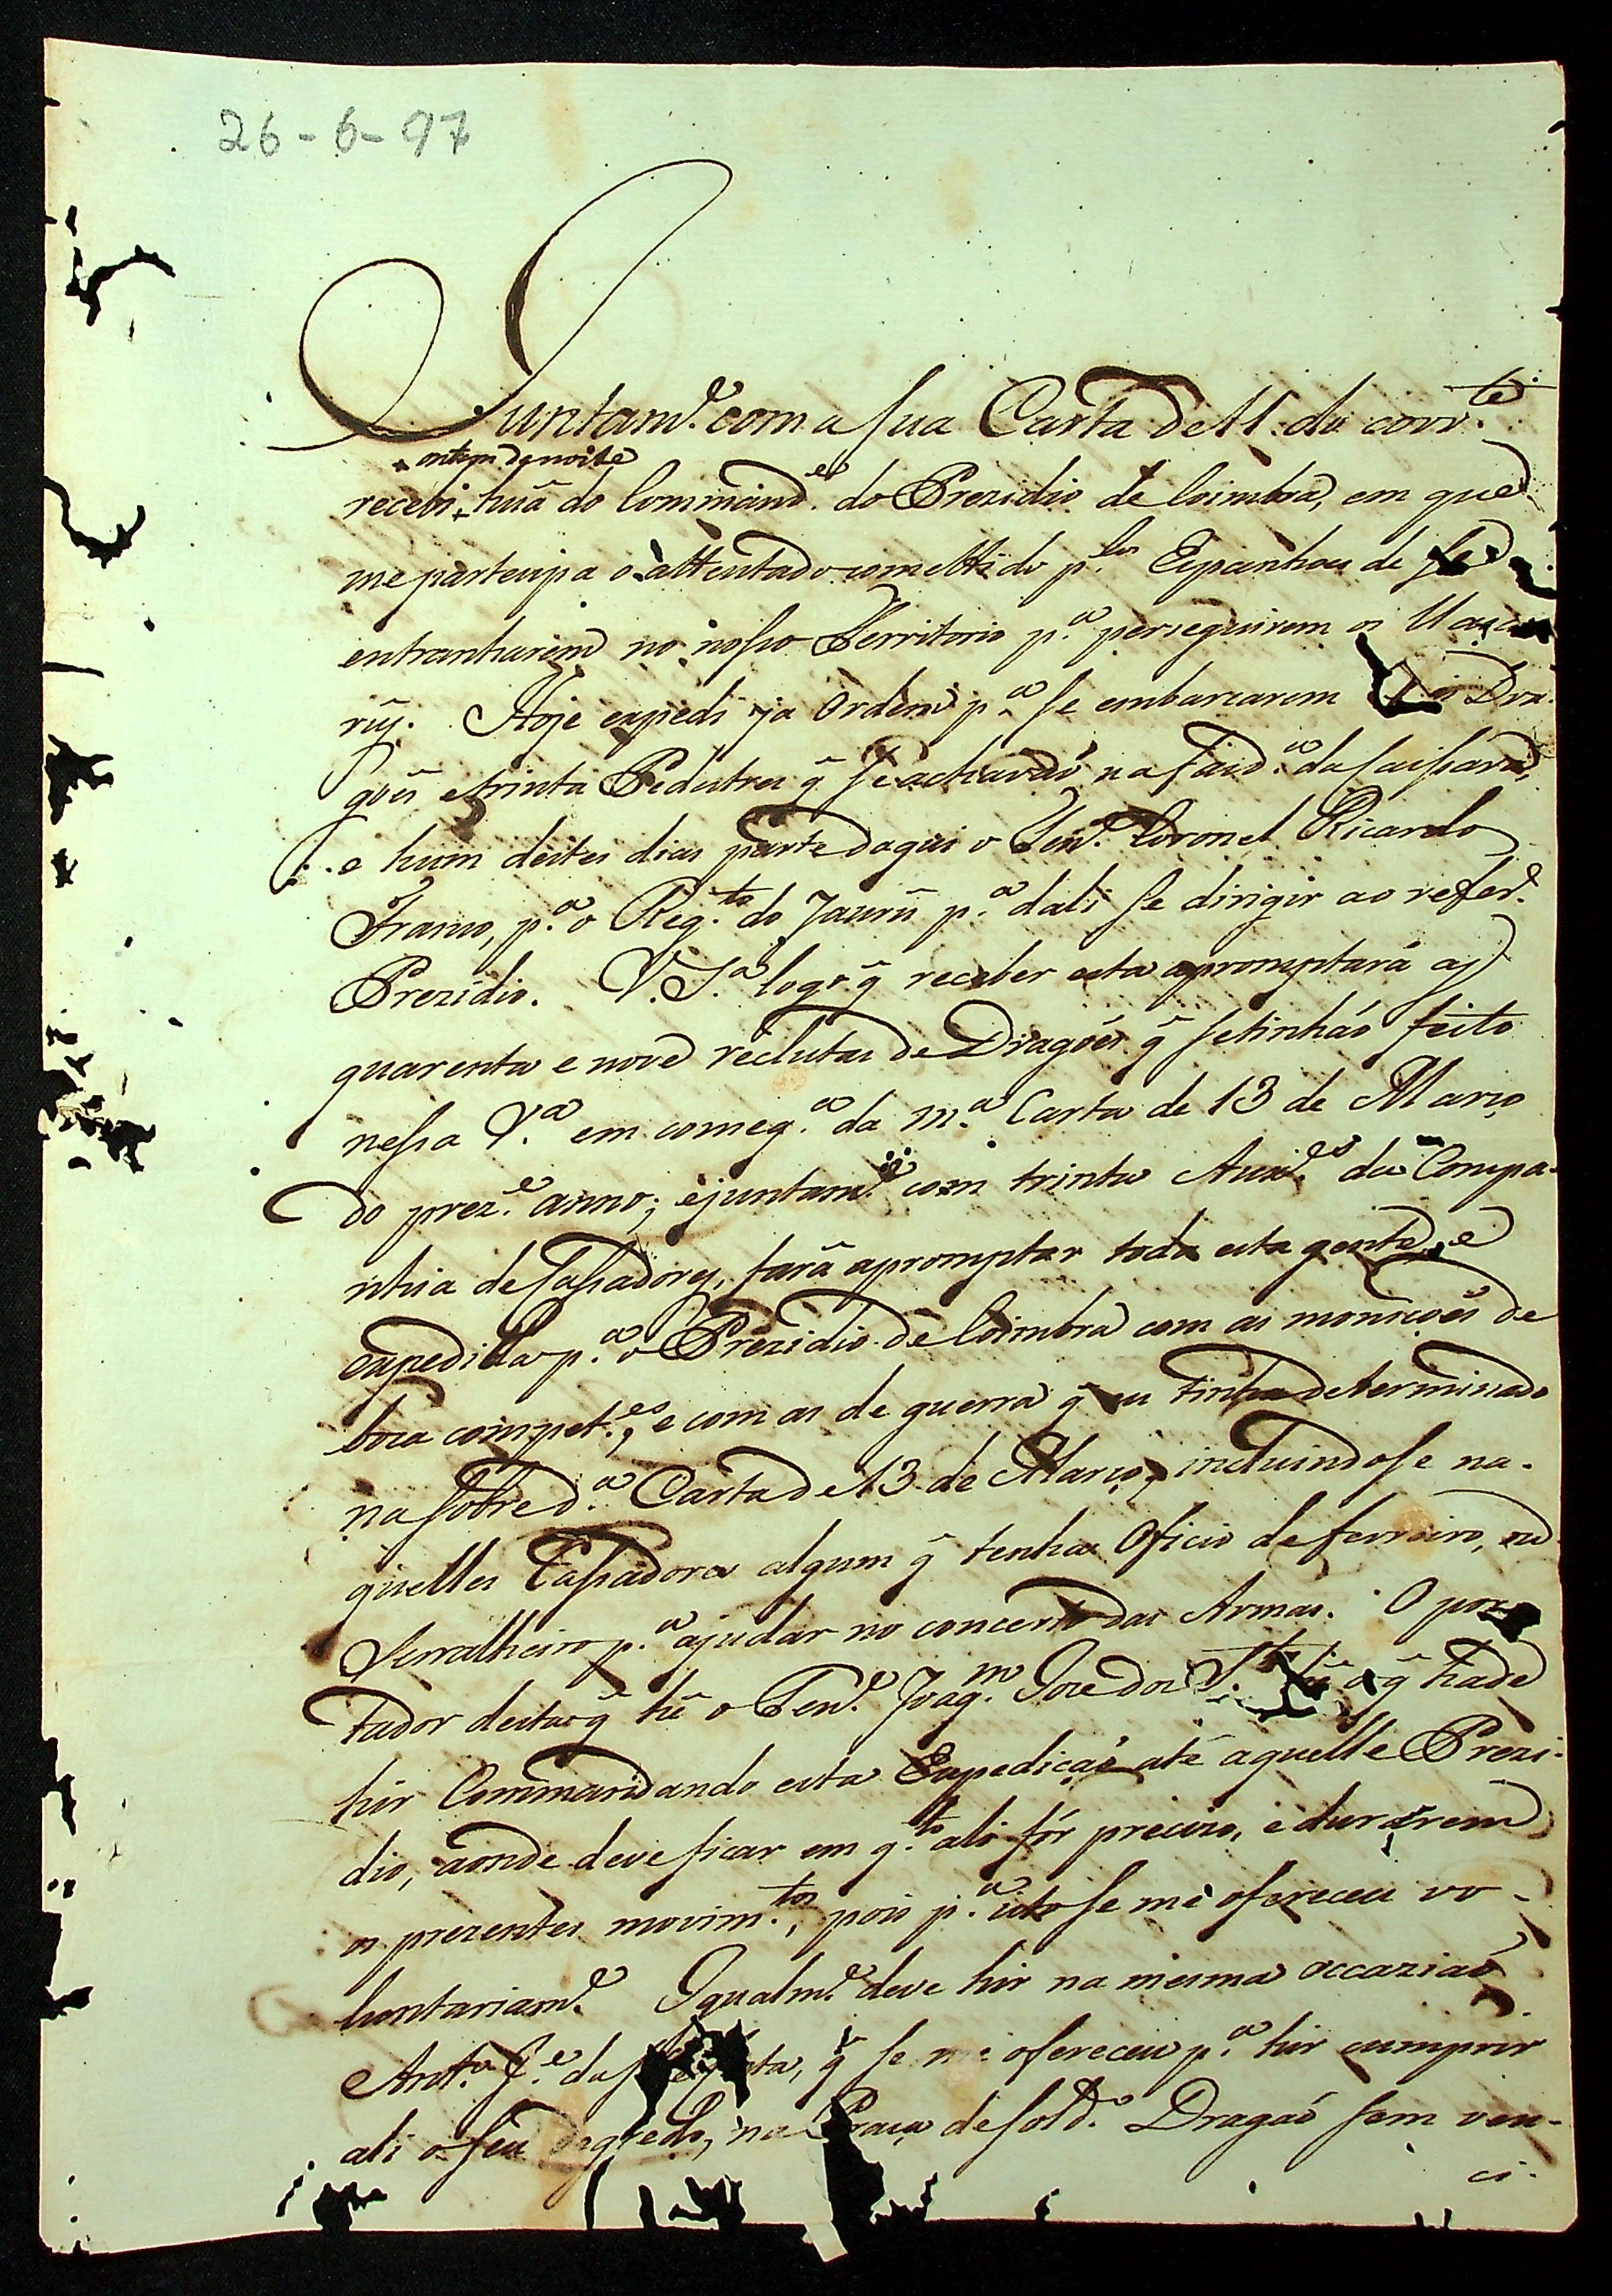 26-6-97
Juntam.e com a sua Carta de 11 do corr.te
ontem de noite
recebi hũa do Command.e do Prezidio de Coimbra, em que
me participa o attentado comettido p.los Espanhoes de se
entranharem no nosso Territorio p.a perseguirem os Uaicu
rus. Hoje expedi ja Ordem p.a se embarcarem os Dra-
goẽs e trinta Pedestres q̃ se achavaõ na do Caissara,
e hum destes dias parte daqui o Ten.e Coronel Ricardo
Franco, p.a o Reg.to do Jaurú p.a dali se dirigir ao refer.o
Prezidio. V.S.a logo q̃ receber esta apromptará as
quarenta e nove reclutas de Dragoẽs q̃ se tinhaõ feito
nessa V.a em conseq.a da m.a Carta de 13 de Março
do prez.e anno; e juntam.e com trinta Aux.es da Compa-
nhia de Cassadores, fará apromptar toda esta gente, e
expedilla p.a o Prezidio de Coimbra com as moniçoẽs de
boca compet.es, e com as de guerra q̃ eu tinha determinado
na sobred.a Carta de 13 de Março, incluindose na-
quelles Cassadores algum q̃ tenha Oficio de ferreiro, ou
Serralheiro p.a ajudar no concerto das Armas. O por
tador desta q̃ hé o Ten.e Joaq.m Joze dos S.tos hé o q̃ hade
hir Commandando esta Expediçaõ até aquelle Prezi-
dio, aonde deve ficar em q.to ali fôr precizo, e durarem
os prezentes movim.tos, pois p.a isto se me ofereceu vo-
luntariam.e Igualm.e deve hir na mesma occaziaõ
Ant.o J.e da ta, q̃ se me ofereceu p.a hir cumprir
ali o seu degredo, na Praça de sold.o Dragaõ sem ven-
ci-